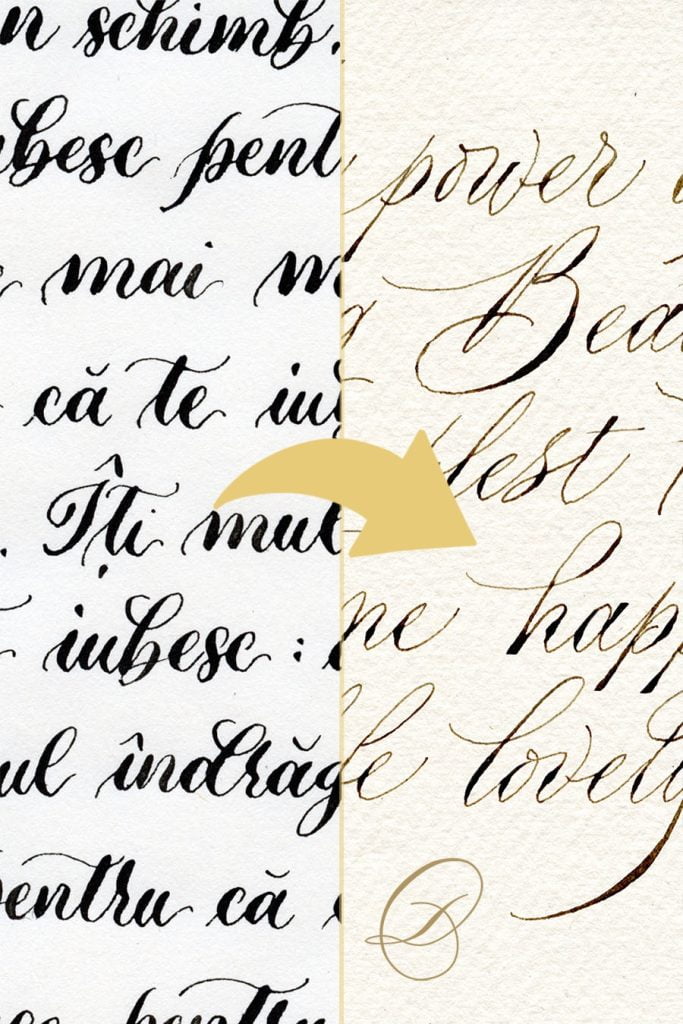 n schimb.
ubesc pent
mai m
că te iu
. Îți mul
iubesc :
ul îndrăg
pentru că
pentru
power
Bea
lest
ne happ
le lovely